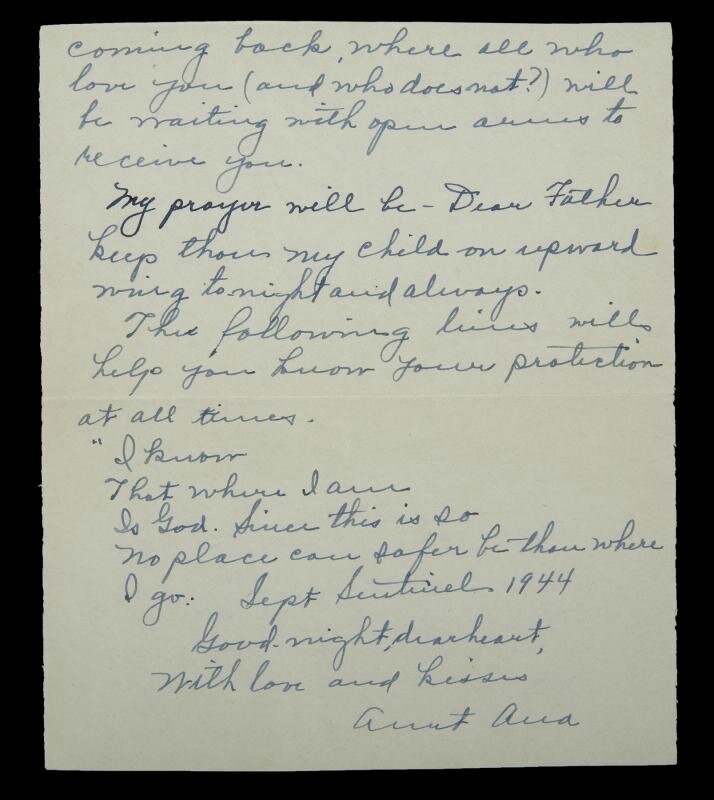 coming back, where all who
love you (and who does not?) will
be waiting with open arms to
receive you.
My prayer will be - Dear Father
keep thou my child on upward
wing tonight and always.
The following lines will
help you know your protection
at all times.
" I know
That where I am
Is God. Since this is so
No place can safer be than where
I go: Sept Sentinel 1944
Good-night, dearheart,
With love and kisses
Aunt Ana